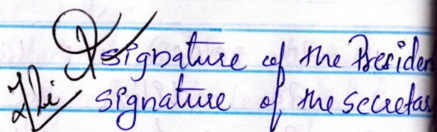 signature of the Presiden
signature of the secretar